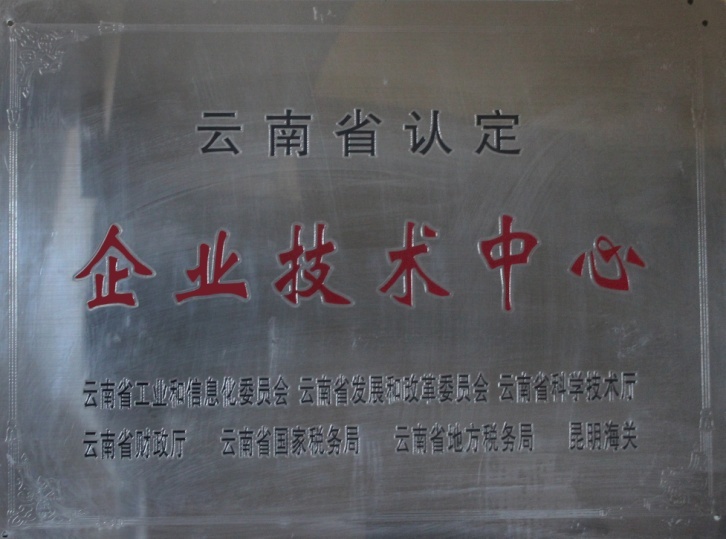 云南省认定
企业技术中心
云南省工业和信息化委员会 云南省发展和改革委员会 云南省科学技术厅
云南省财政厅 云南省国家税务局 云南省地方税务局 昆明海关